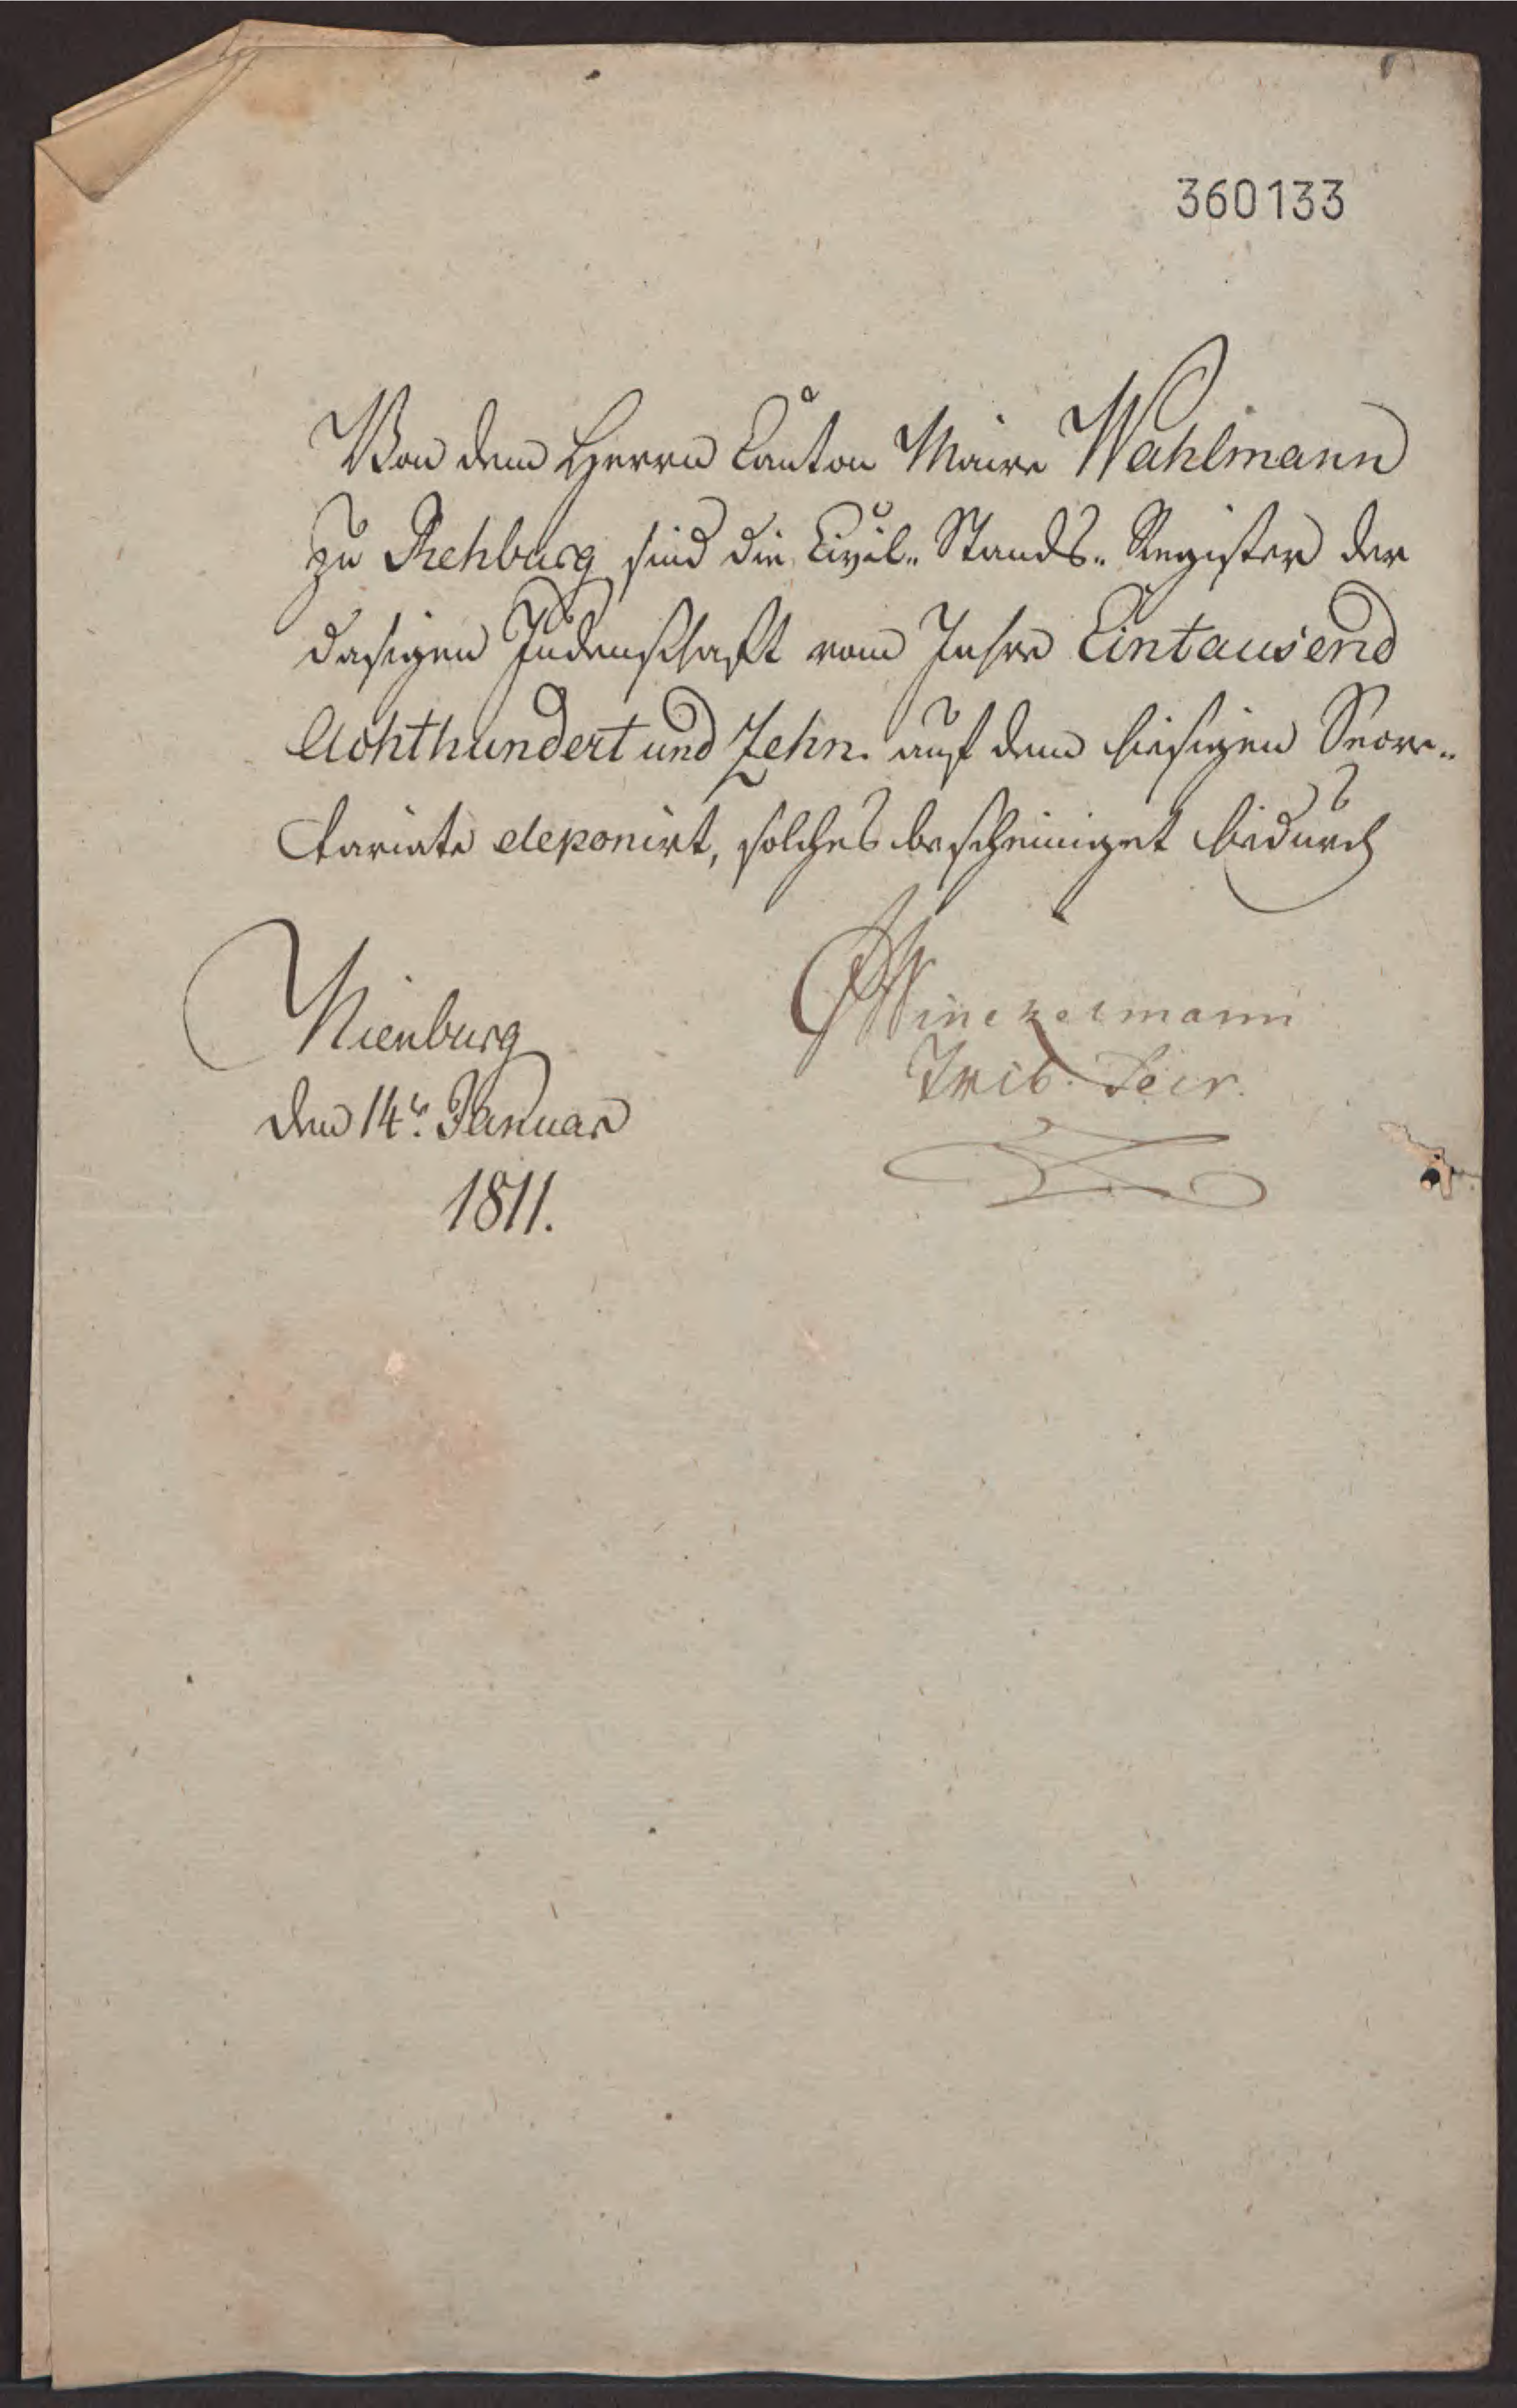 360133
Von dem Herrn Canton Maire Wahlmann
zu Rehburg sind die Civil„ Stands„ Register der
dasigen Judenschaft vom Jahre Eintausend
Achthundert und Zehn. auf dem hiesigen Secre„
tariate deponirt, solches bescheiniget hiedurch
Nienburg
den 14t. Januar
1811.
Trib. Secr.